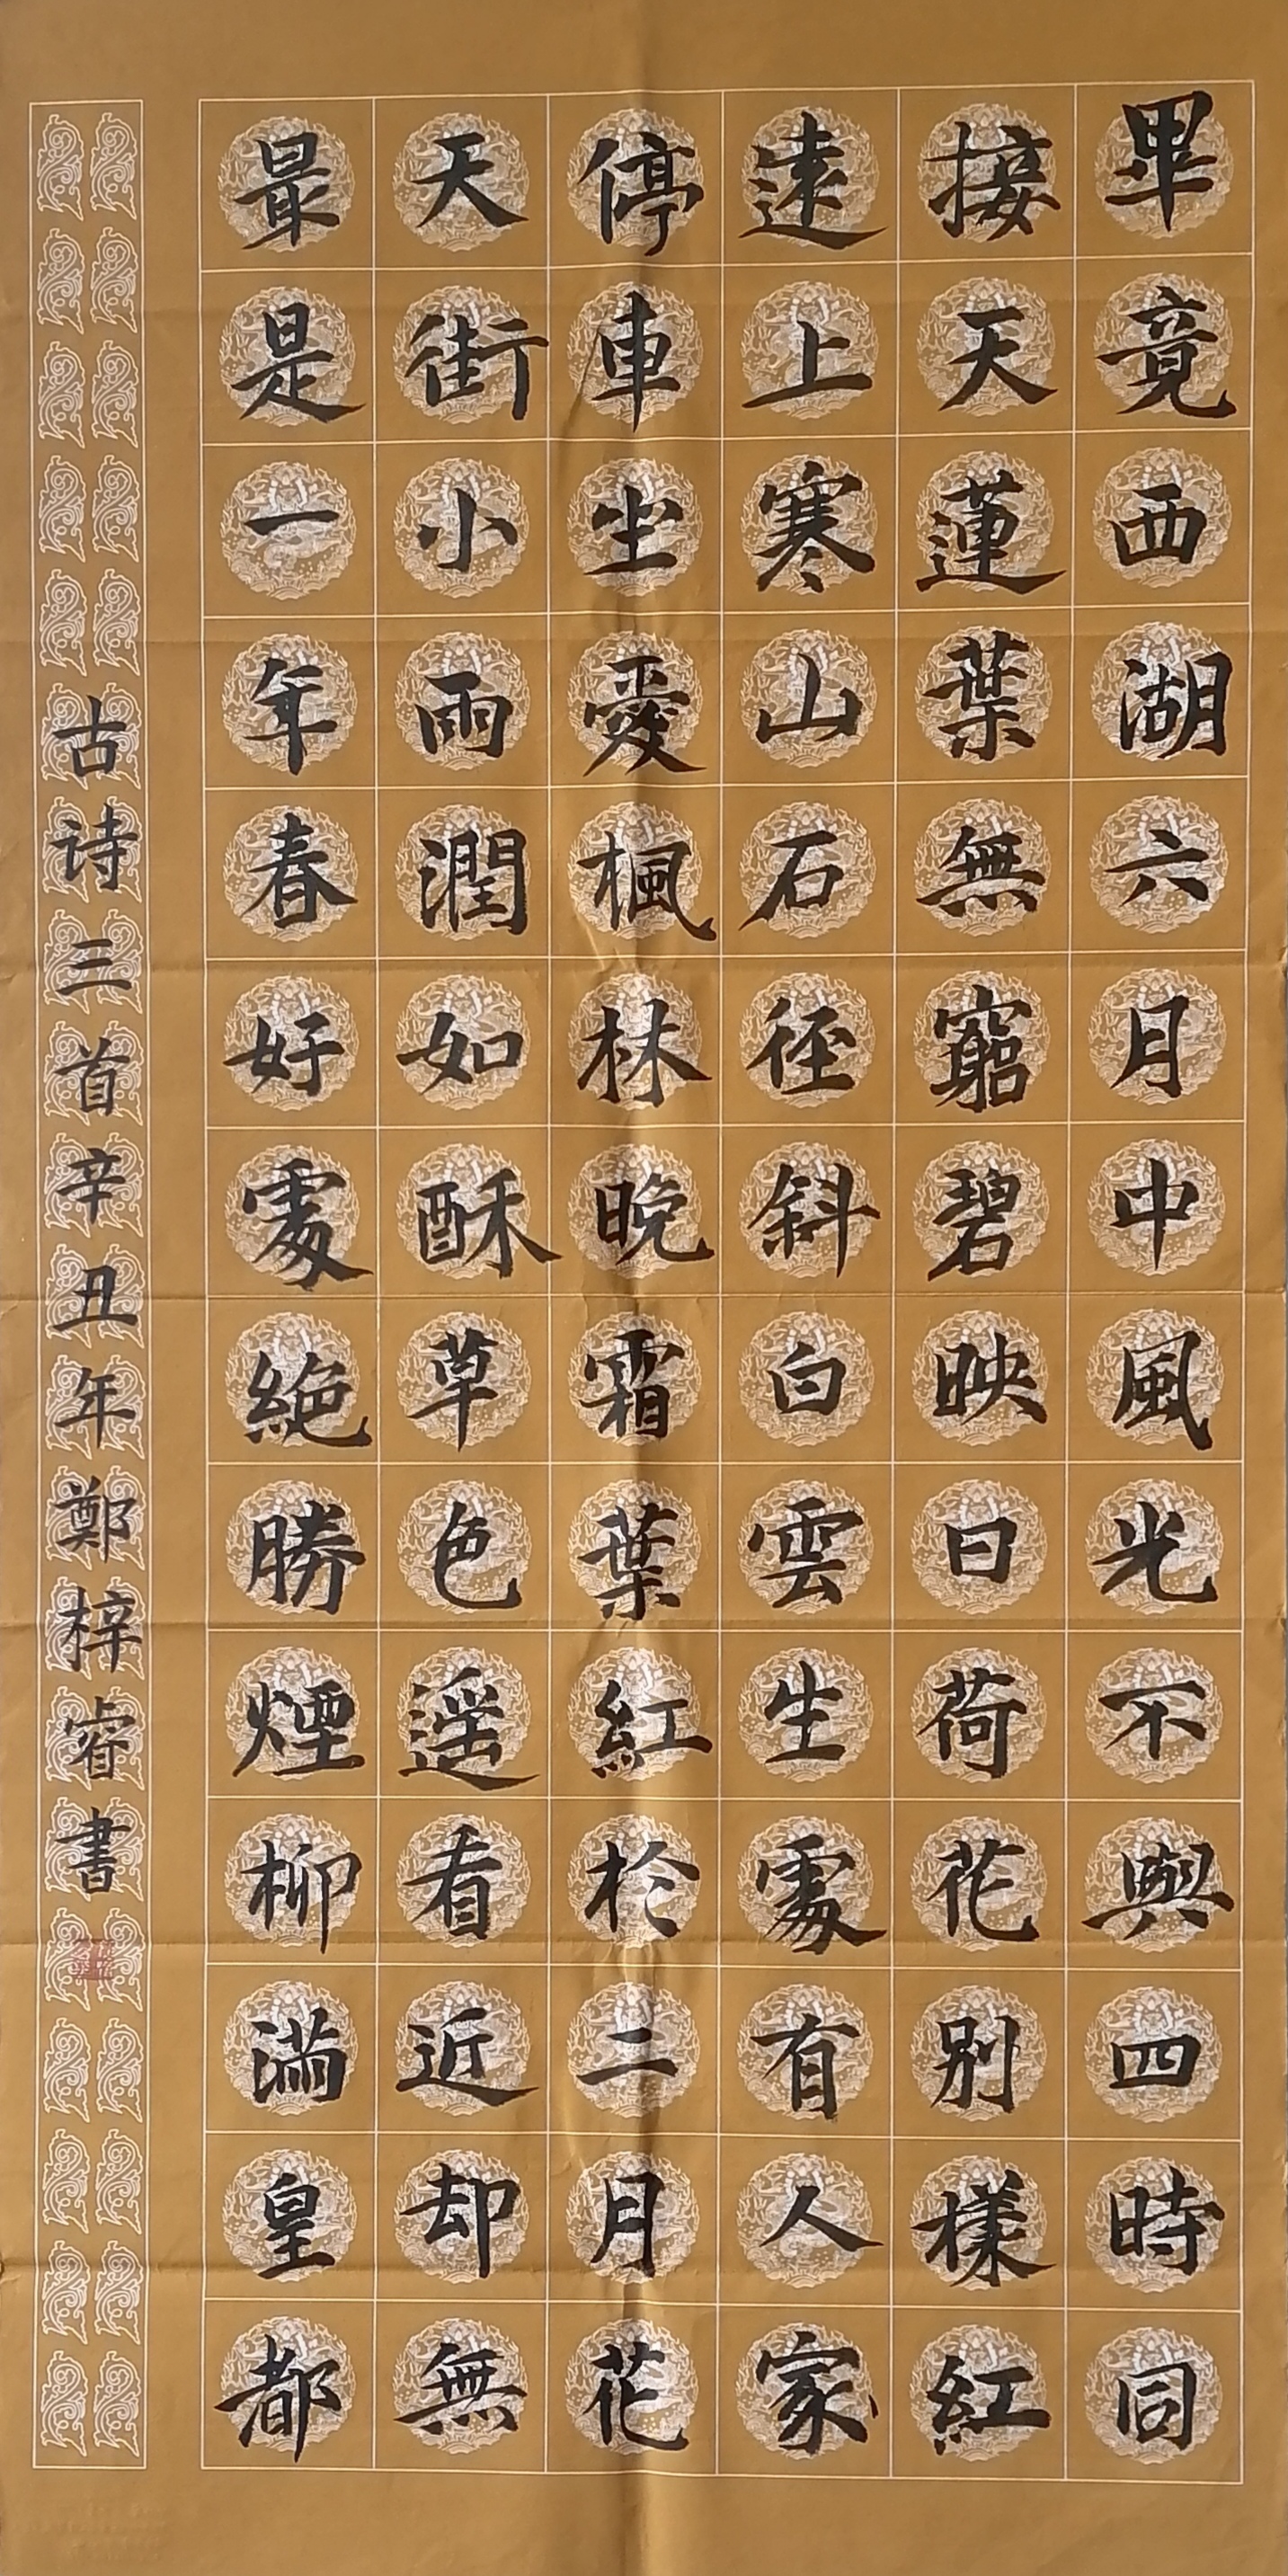 畢竟西湖六月中風光不與四時同
接天蓮葉無窮碧映日荷花別樣紅
遠上寒山石徑斜白雲生處有人家
停車坐愛楓林晚霜葉紅於二月花
天街小雨潤如酥草色遥看近却無
最是一年春好處絕勝煙柳滿皇都
古诗三首辛丑年鄭梓睿書